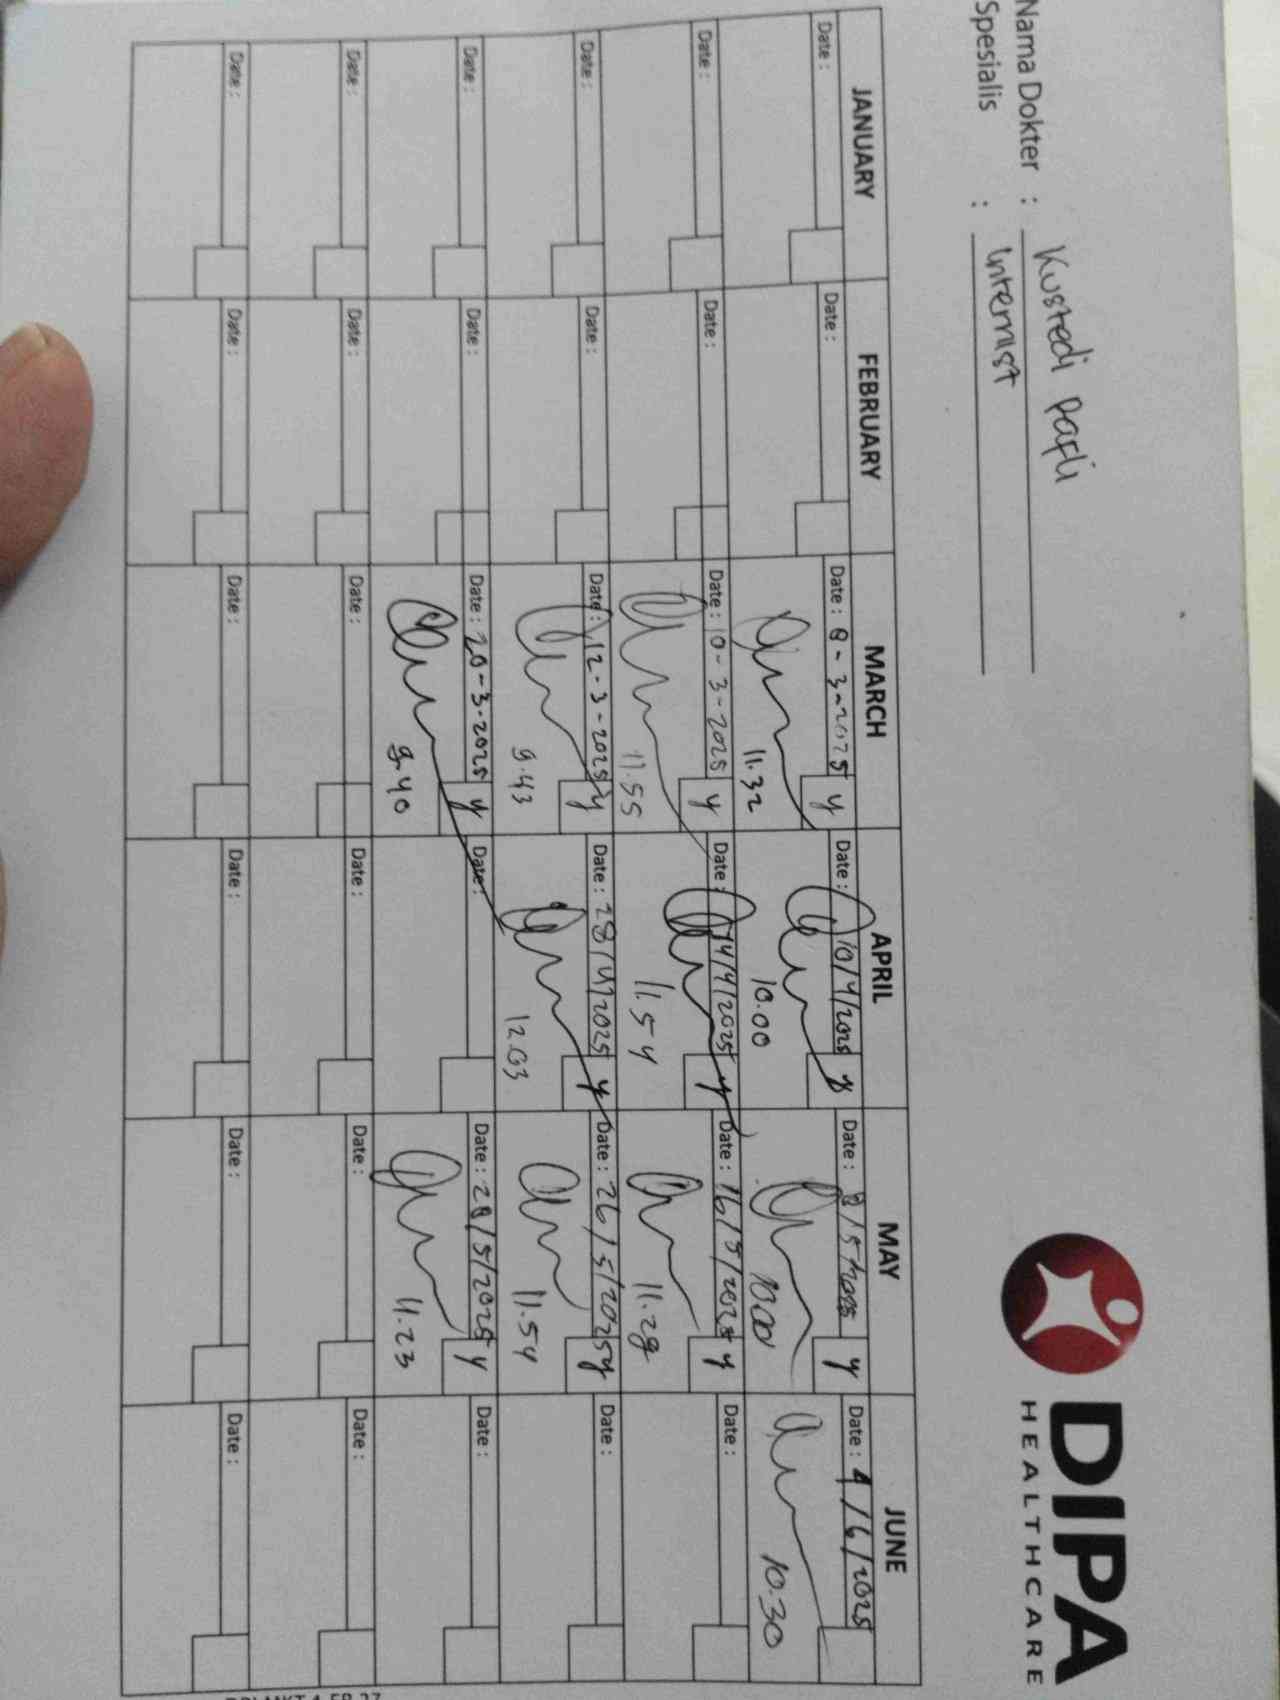 Nama Dokter : Kustedi
Spesialis : Internist
DIPA
HEALTHCARE
JANUARY FEBRUARY MARCH APRIL MAY JUNE
Date : Date : Date : 8-3-2025 y Date : 10/4/2025 y Date : 8/5/2025 y Date : 4/6/2025
11.32 10.00 10.00 10.30
Date : Date : Date : 10-3-2025 y Date : 14/4/2025 y Date : 16/5/2025 y Date :
11.55 11.54 11.29
Date : Date : Date : 12-3-2025 y Date : 28/4/2025 y Date : 26/5/2025 y Date :
9.43 12.03 11.54
Date : Date : Date : 20-3-2025 y Date : Date : 28/5/2025 y Date :
9.40 11.23
Date : Date : Date : Date : Date : Date :
Date : Date : Date : Date : Date : Date :